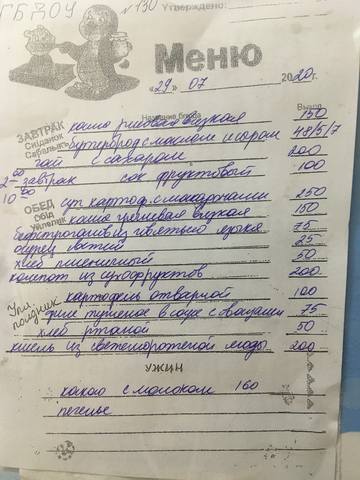 ГБДОУ № 130
Утверждено:
Меню
«29» 07 2020г.
Название блюда Выход
ЗАВТРАК каша рисовая вязкая 150
Сніданок бутерброд с маслом и сыром 48/5/7
чай с сахаром 200
2-ой завтрак сок фруктовый 100
10 00
ОБЕД суп картоф. с макаронами 250
Обід каша гречневая вязкая 150
бефстроганов из языка 75
огурец 25
хлеб пшеничный 50
компот из сухофруктов 200
картофель отварной 100
полдник тушеное в соусе с овощами 75
хлеб ржаной 50
кисель из свежемороженой ягоды 200
УЖИН
какао с молоком 160
печенье